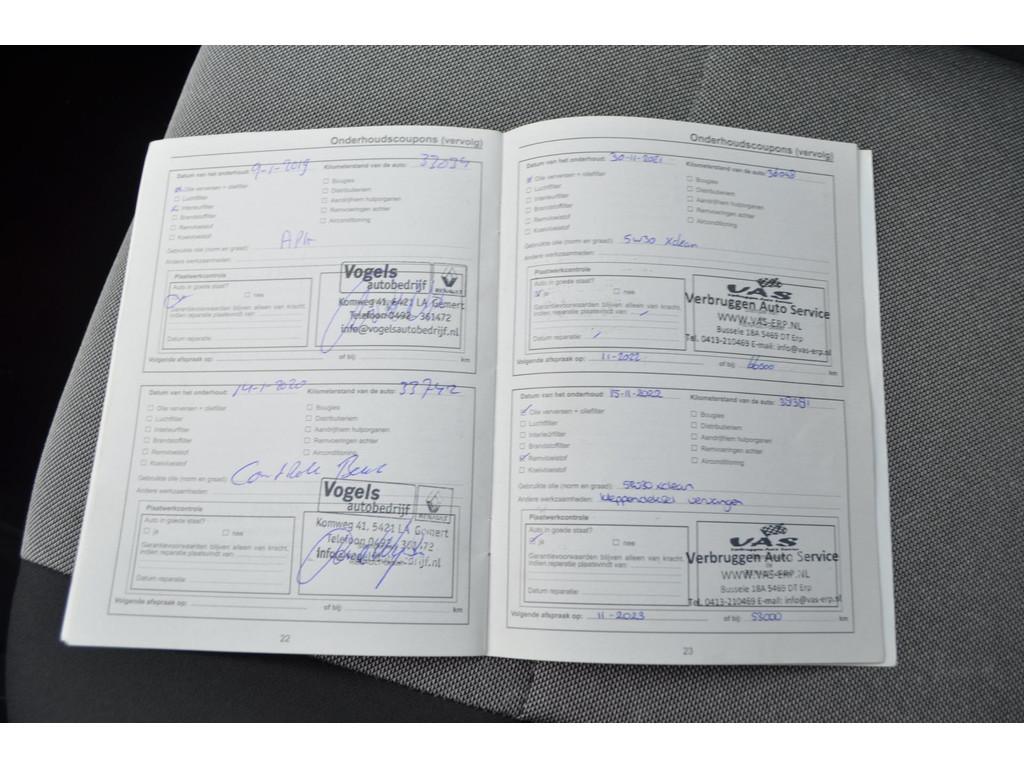 Onderhoudscoupons (vervolg)
Datum van het onderhoud: 9-1-2019 Kilometerstand van de auto:
Olie verversen + oliefilter
Bougies
Luchtfilter
Distributieriem
Interieurfilter
Aandrijfriem hulporganen
Brandstoffilter
Remvoeringen achter
Remvloeistof
Airconditioning
Koelvloeistof
Gebruikte olie (norm en graad):
Andere werkzaamheden:
Plaatwerkcontrole
Auto in goede staat?
nee
Garantievoorwaarden blijven alleen van kracht,
indien reparatie plaatsvindt van
Datum reparatie:
Vogels
autobedrijf
RENAULT
Komweg 41, 5421 LA Gemert
Telefoon 0492 - 361472
info@vogelsautobedrijf.nl
Volgende afspraak op: of bij: km
Datum van het onderhoud: 14-1-2020 Kilometerstand van de auto: 33742
Olie verversen + oliefilter
Bougies
Luchtfilter
Distributieriem
Interieurfilter
Aandrijfriem hulporganen
Brandstoffilter
Remvoeringen achter
Remvloeistof
Airconditioning
Koelvloeistof
Gebruikte olie (norm en graad): Controle
Andere werkzaamheden:
Plaatwerkcontrole
Auto in goede staat?
ja nee
Garantievoorwaarden blijven alleen van kracht,
indien reparatie plaatsvindt van
Datum reparatie:
Vogels
autobedrijf
RENAULT
Komweg 41, 5421 LA Gemert
Telefoon 0492 - 361472
info@vogelsautobedrijf.nl
Volgende afspraak op: of bij: km
22
Onderhoudscoupons (vervolg)
Datum van het onderhoud: 30-11-2021 Kilometerstand van de auto:
Olie verversen + oliefilter
Bougies
Luchtfilter
Distributieriem
Interieurfilter
Aandrijfriem hulporganen
Brandstoffilter
Remvoeringen achter
Remvloeistof
Airconditioning
Koelvloeistof
Gebruikte olie (norm en graad): 5W30 xclean
Andere werkzaamheden:
Plaatwerkcontrole
Auto in goede staat?
ja nee
Garantievoorwaarden blijven alleen van kracht,
indien reparatie plaatsvindt van
Datum reparatie:
VAS
Verbruggen Auto Service
WWW.VAS-ERP.NL
Bussele 18A 5469 DT Erp
Tel. 0413-210469 E-mail: info@vas-erp.nl
Volgende afspraak op: 11-2022 of bij: km
Datum van het onderhoud: 15-11-2022 Kilometerstand van de auto:
Olie verversen + oliefilter
Bougies
Luchtfilter
Distributieriem
Interieurfilter
Aandrijfriem hulporganen
Brandstoffilter
Remvoeringen achter
Remvloeistof
Airconditioning
Koelvloeistof
Gebruikte olie (norm en graad): 5W30 xclean
Andere werkzaamheden: kleppendeksel vervangen
Plaatwerkcontrole
Auto in goede staat?
ja nee
Garantievoorwaarden blijven alleen van kracht,
indien reparatie plaatsvindt van
Datum reparatie:
VAS
Verbruggen Auto Service
WWW.VAS-ERP.NL
Bussele 18A 5469 DT Erp
Tel. 0413-210469 E-mail: info@vas-erp.nl
Volgende afspraak op: 11-2023 of bij: 53000 km
23